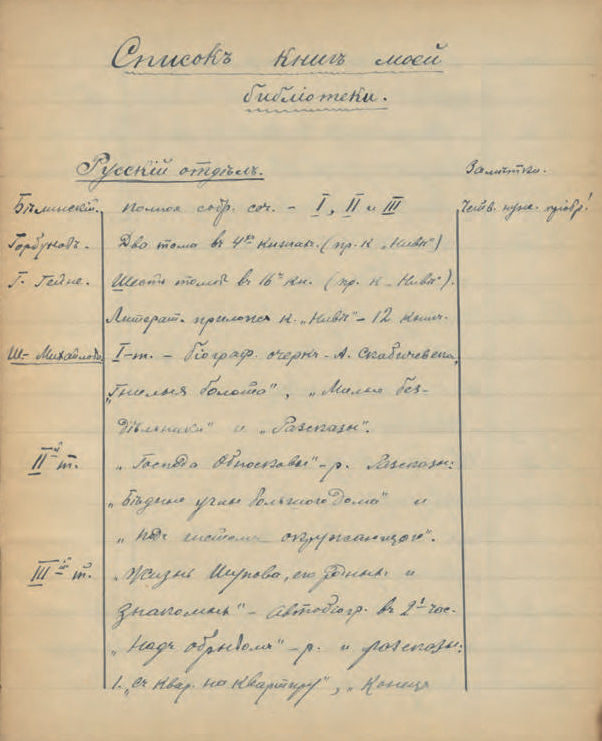 Списокъ книгъ моей
библіотеки.
Русскій отдѣлъ.
Замѣтки.
Бѣлинскій. полное собр. соч. - I, II и III
Горбуновъ. Два тома въ 4хъ книгахъ. (пр. к „Нивѣ")
Г. Гейне. Шесть томовъ въ 16 кн. (пр. к „Нивѣ").
Литерат. прилож к. „Нивѣ" - 12 книг.
Ш- Михайловъ. I-т. - біограф. очеркъ - А. Скабичевскаго,
„Гнилыя болота", „Милые без-
дѣльники" и „Разсказы".
IIй т. „Господа Обносковы" - р. Разсказы:
„Бѣдные углы большого дома" и
„Подъ гнетомъ окружающаго".
IIIій т. „Жизнь Шупова, его родныхъ и
знакомыхъ" - автобіогр. въ 2хъ час.
„Надъ обрывомъ" - р. и разсказы:
1. „Съ квар. на квартиру", „Конецъ